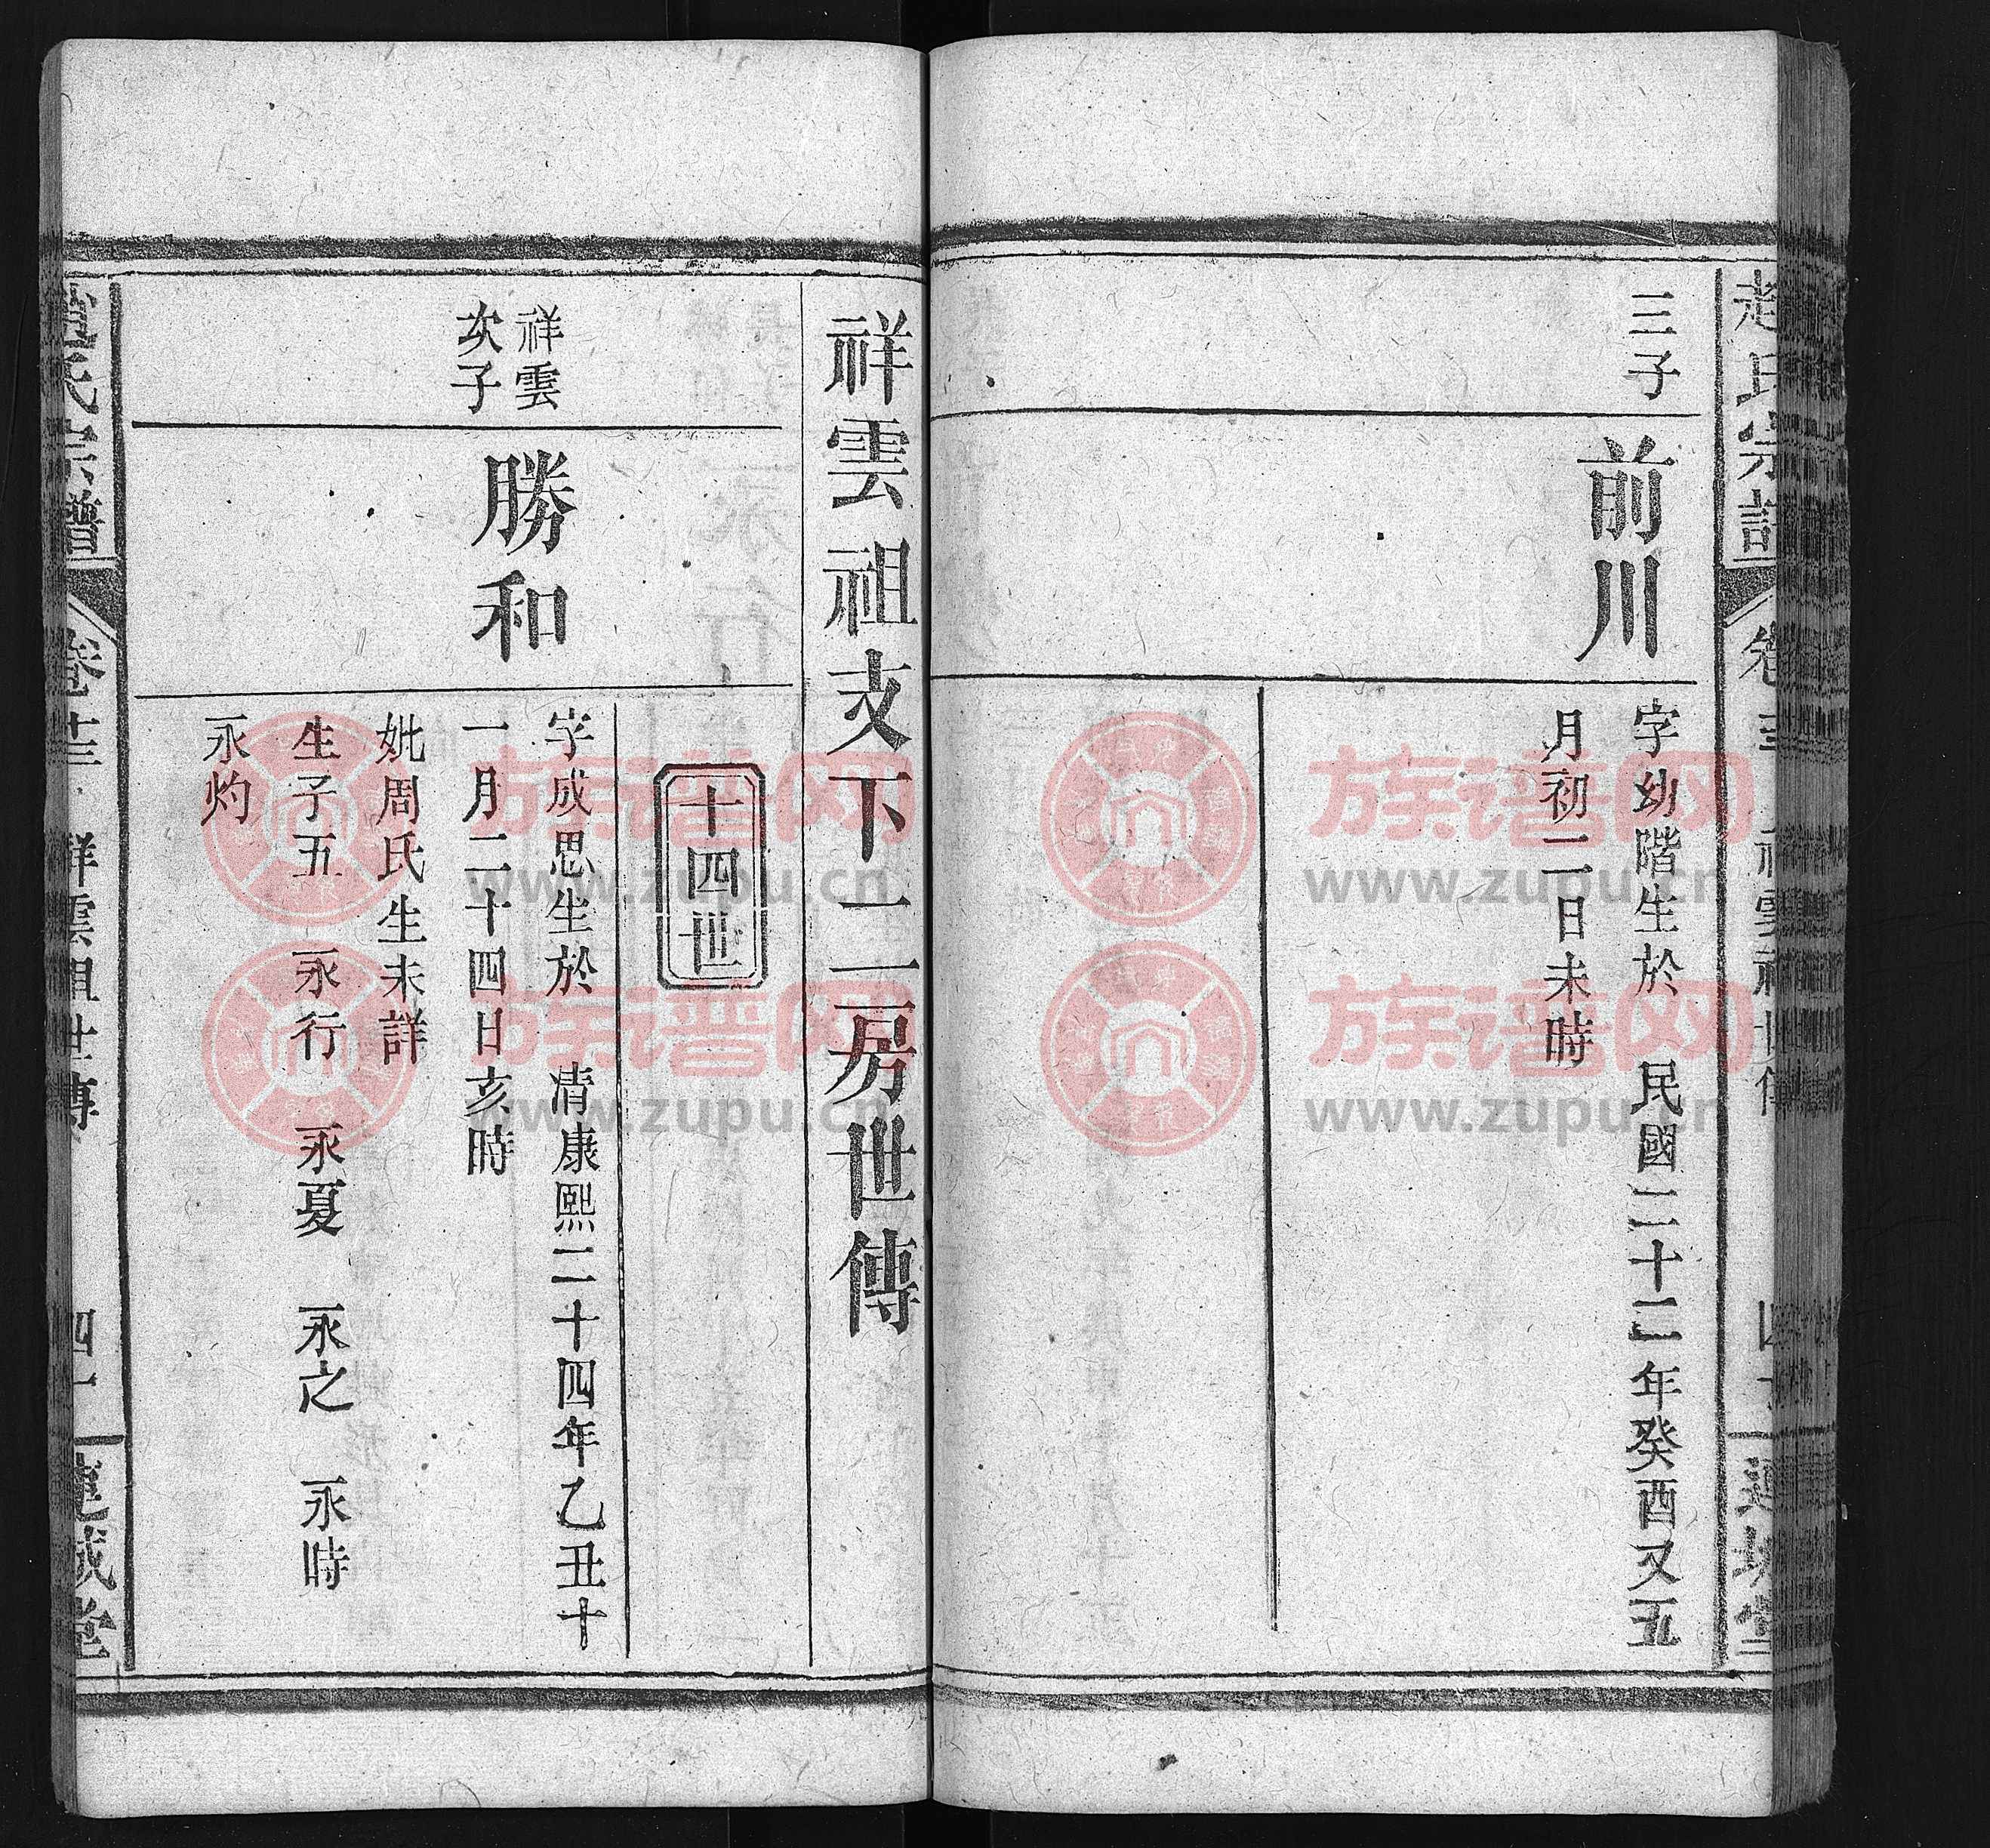 趙氏宗譜
三子
前川
字幼階生於 民國二十二年癸酉又五
月初二日未時
祥雲祖支下二房世傳
十四世
祥雲
次子
勝和
字成思生於 清康熙二十四年乙丑十
一月二十四日亥時
妣周氏生未詳
生子五 永行 永夏 永之 永時
永灼
氏宗譜 卷十三 祥雲祖世傳 四十一
族谱网
www.zupu.cn
族谱网
www.zupu.cn
族谱网
www.zupu.cn
族谱网
www.zupu.cn